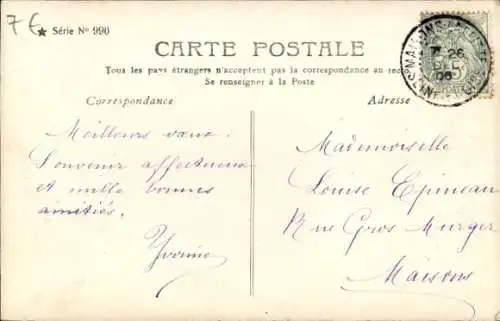 7€
★ Série Nº 990
CARTE POSTALE
Tous les pays étrangers n'acceptent pas la correspondance au
Se renseigner à la Poste
Correspondance
Adresse
Meilleurs vœux.
Souvenir affectueux
et mille bonnes
amitiés.
Yvonne
Mademoiselle
Louise Epineau
Rue Gros Murger
Maisons
26